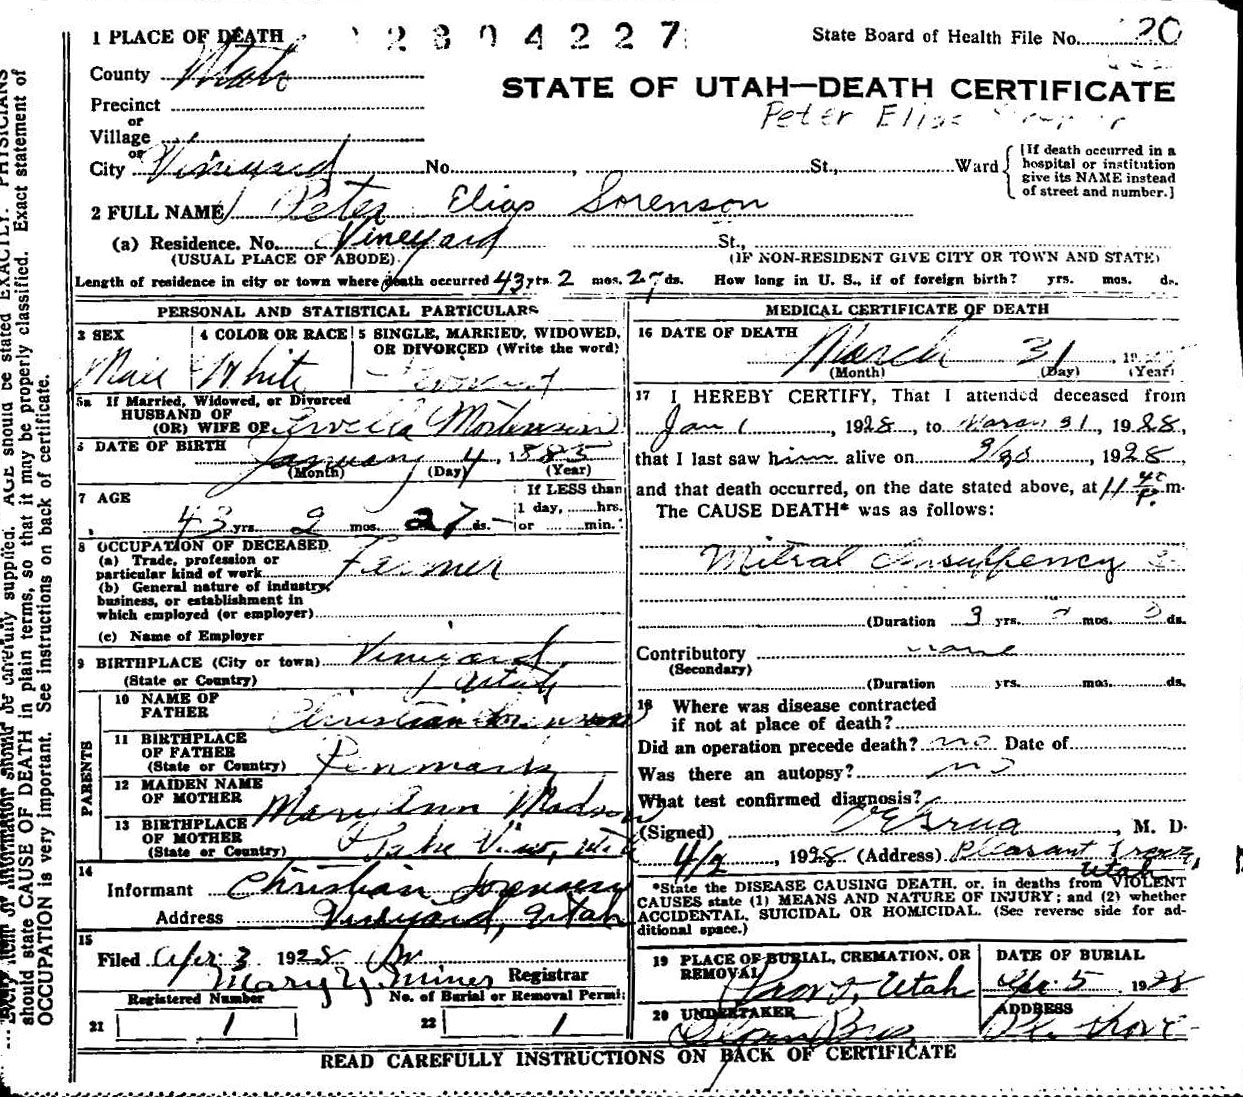 1 PLACE OF DEATH 2804227 State Board of Health File No. 20
County Utah
STATE OF UTAH—DEATH CERTIFICATE
Precinct
Peter Elias
or
Village
or
City Vineyard No. , St., Ward [If death occurred in a hospital or institution give its NAME instead of street and number.]
2 FULL NAME Peter Elias Sorenson
(a) Residence. No. Vineyard St.,
(USUAL PLACE OF ABODE) (IF NON-RESIDENT GIVE CITY OR TOWN AND STATE)
Length of residence in city or town where death occurred 43 yrs. 2 mos. 27 ds. How long in U. S., if of foreign birth? yrs. mos. ds.
PERSONAL AND STATISTICAL PARTICULARS
3 SEX 4 COLOR OR RACE 5 SINGLE, MARRIED, WIDOWED,
OR DIVORCED (Write the word)
Male White
5a If Married, Widowed, or Divorced
HUSBAND OF
(OR) WIFE OF Mortenson
6 DATE OF BIRTH January 4, 1885
(Month) (Day) (Year)
7 AGE If LESS than
1 day, hrs.
43 yrs. 2 mos. 27 ds. or min.
8 OCCUPATION OF DECEASED
(a) Trade, profession or
particular kind of work Farmer
(b) General nature of industry,
business, or establishment in
which employed (or employer)
(c) Name of Employer
9 BIRTHPLACE (City or town) Vineyard,
(State or Country) Utah
PARENTS
10 NAME OF
FATHER Christian Sorenson
11 BIRTHPLACE
OF FATHER
(State or Country) Denmark
12 MAIDEN NAME
OF MOTHER Mary Ann Madson
13 BIRTHPLACE
OF MOTHER
(State or Country) Lake View, Utah
14
Informant Christian Sorensen
Address Vineyard, Utah
15
Filed Apr. 3 1928
Mary Y. Miner Registrar
Registered Number No. of Burial or Removal Permit
21 1 22 1
MEDICAL CERTIFICATE OF DEATH
16 DATE OF DEATH
March 31, 19
(Month) (Day) (Year)
17 I HEREBY CERTIFY, That I attended deceased from
Jan 1, 1928, to March 31, 1928,
that I last saw him alive on 3/30, 1928
and that death occurred, on the date stated above, at 11 40 P. m.
The CAUSE DEATH* was as follows:
Mitral Insuffency
(Duration 3 yrs. mos. ds.
Contributory none
(Secondary)
(Duration yrs. mos. ds.
18 Where was disease contracted
if not at place of death?
Did an operation precede death? no Date of
Was there an autopsy? no
What test confirmed diagnosis?
(Signed) , M. D.
4/2, 1928 (Address) Pleasant Grove,
Utah
*State the DISEASE CAUSING DEATH, or, in deaths from VIOLENT
CAUSES state (1) MEANS AND NATURE OF INJURY; and (2) whether
ACCIDENTAL, SUICIDAL OR HOMICIDAL. (See reverse side for ad-
ditional space.)
19 PLACE OF BURIAL, CREMATION, OR DATE OF BURIAL
REMOVAL
Provo, Utah Apr. 5 1928
20 UNDERTAKER ADDRESS
Bros,
READ CAREFULLY INSTRUCTIONS ON BACK OF CERTIFICATE
should be carefully supplied. AGE should be stated EXACTLY. PHYSICIANS
should state CAUSE OF DEATH in plain terms, so that it may be properly classified. Exact statement of
OCCUPATION is very important. See instructions on back of certificate.